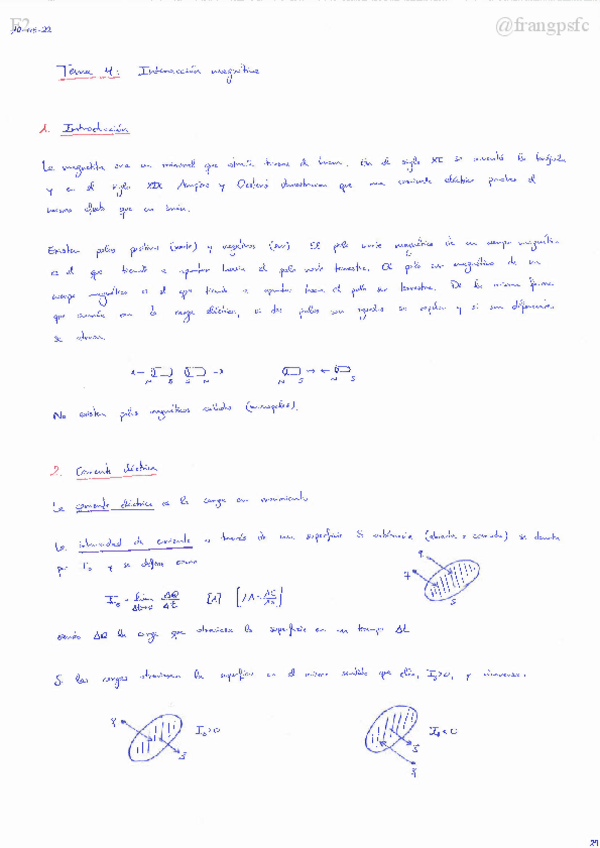 F2
@frangpsfc
Tema 4: Interacción magnética
1. Introducción
La magnetita era un mineral que atraía trozos de hierro. En el siglo XI se inventó la brújula
y en el siglo XIX Ampère y Oersted demostraron que una corriente eléctrica produce el
mismo efecto que un imán.
Existen polos positivos (norte) y negativos (sur). El polo norte magnético de un cuerpo magnético
es el que tiende a apuntar hacia el polo norte terrestre. El polo sur magnético de un
cuerpo magnético es el que tiende a apuntar hacia el polo sur terrestre. De la misma forma
que ocurría con la carga eléctrica, si dos polos son iguales se repelen y si son diferentes
se atraen.
N S S N N S N S
No existen polos magnéticos aislados (monopolos).
2. Corriente eléctrica
La corriente eléctrica es la carga en movimiento
La intensidad de corriente a través de una superficie S arbitraria (abierta o cerrada) se denota
por Is y se define como
Is = lim Δt→0 ΔQ/Δt [A] [1A = 1C/1s]
q
q
S
siendo ΔQ la carga que atraviesa la superficie en un tiempo Δt
Si las cargas atraviesan la superficie en el mismo sentido que ella, Is>0, y viceversa.
Is>0
Is<0
29